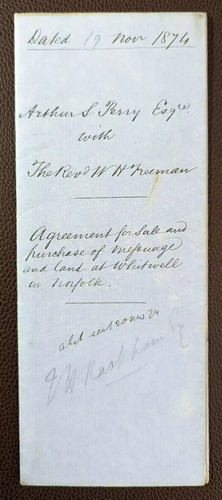 Dated 19 Nov 1874
Arthur S Perry Esqre
with
The Revd W H Freeman
Agreement for Sale and
purchase of messuage
and land at Whitwell
in Norfolk.